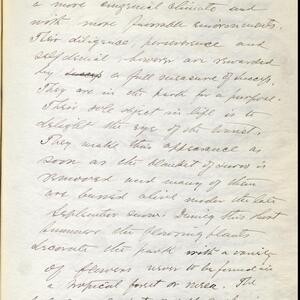 a more congenial climate and
with more favorable environments.
Their diligence, perseverance and
self denial however are rewarded
by success a full measure of success.
They are in the park for a purpose.
Their sole object in life is to
delight the eye of the tourist.
They make their appearance as
soon as the blanket of snow is
removed and many of them
are buried alive under the late
September snow. During this short
summer the blooming plants
decorate the park with a variety
of flowers never to be found in
a tropical forest or